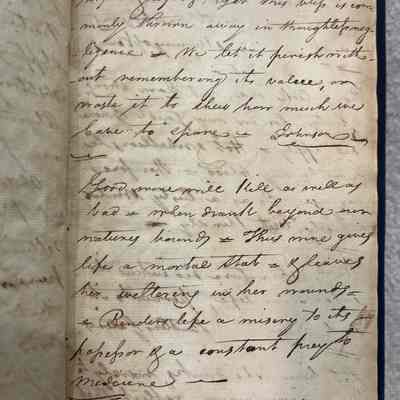 this bliss is com
monly thrown away in thoughtless neg-
ligence = We let it perish with-
out remembering its value, or
waste it to shew how much we
have to spare = Johnson
Good wine will kill as well as
bad = when drank beyond our
natures bounds = Thus wine gives
life a mortal stab = & leaves
her weltering in her wounds =
= Renders life a misery to its
possessor & a constant prey to
medicine =